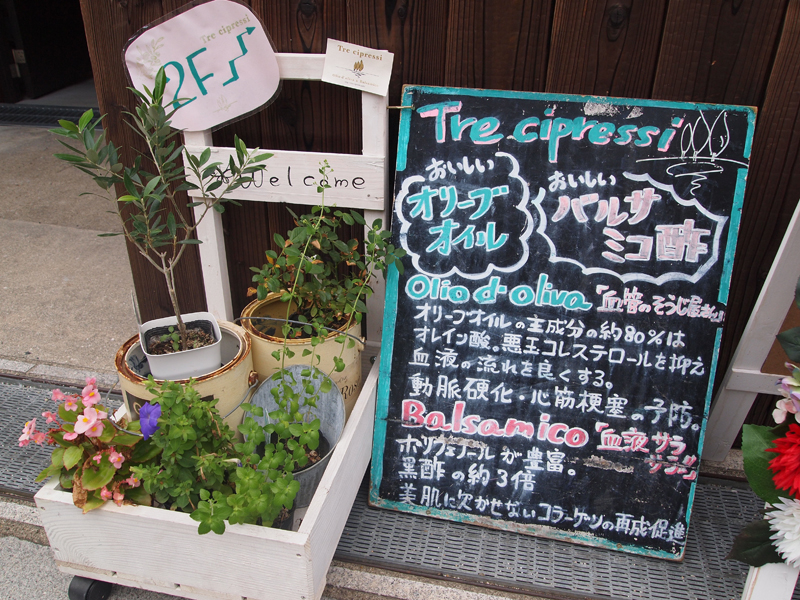 Tre cipressi
2F
Tre cipressi
Welcome
Tre cipressi
おいしい
オリーブ
オイル
おいしい
バルサ
ミコ酢
Olio d oliva 「血管のそうじ屋さん」
オリーブオイルの主成分の約80%は
オレイン酸。悪玉コレステロールを抑え
血液の流れを良くする。
動脈硬化・心筋梗塞の予防。
Balsamico 「血液サラ
サラ」
ポリフェノールが豊富。
黒酢の約3倍
美肌に欠かせないコラーゲンの再成促進